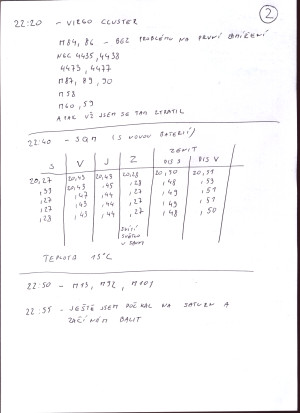 2
22:20 - VIRGO CLUSTER
M84, 86 - BEZ PROBLÉMU NA PRVNÍ ZAMÍŘENÍ
NGC 4435, 4438
4473, 4477
M87, 89, 90
M58
M60, 59
A TAK UŽ JSEM SE TAM ZTRATIL
22:40 - SQM (S NOVOU BATERIÍ)
ZENIT
S V J Z BIS S BIS V
20,27 20,43 20,43 20,28 20,50 20,51
,27 ,44 ,27
,27 ,44 ,27
,28 ,43 ,44 ,27 ,48 ,50
SVÍTÍ
SVĚTLO
TEPLOTA 15°C
22:50 - M13, M92, M101
22:55 - JEŠTĚ JSEM POČKAL NA SATURN A
ZAČÍNÁM BALIT